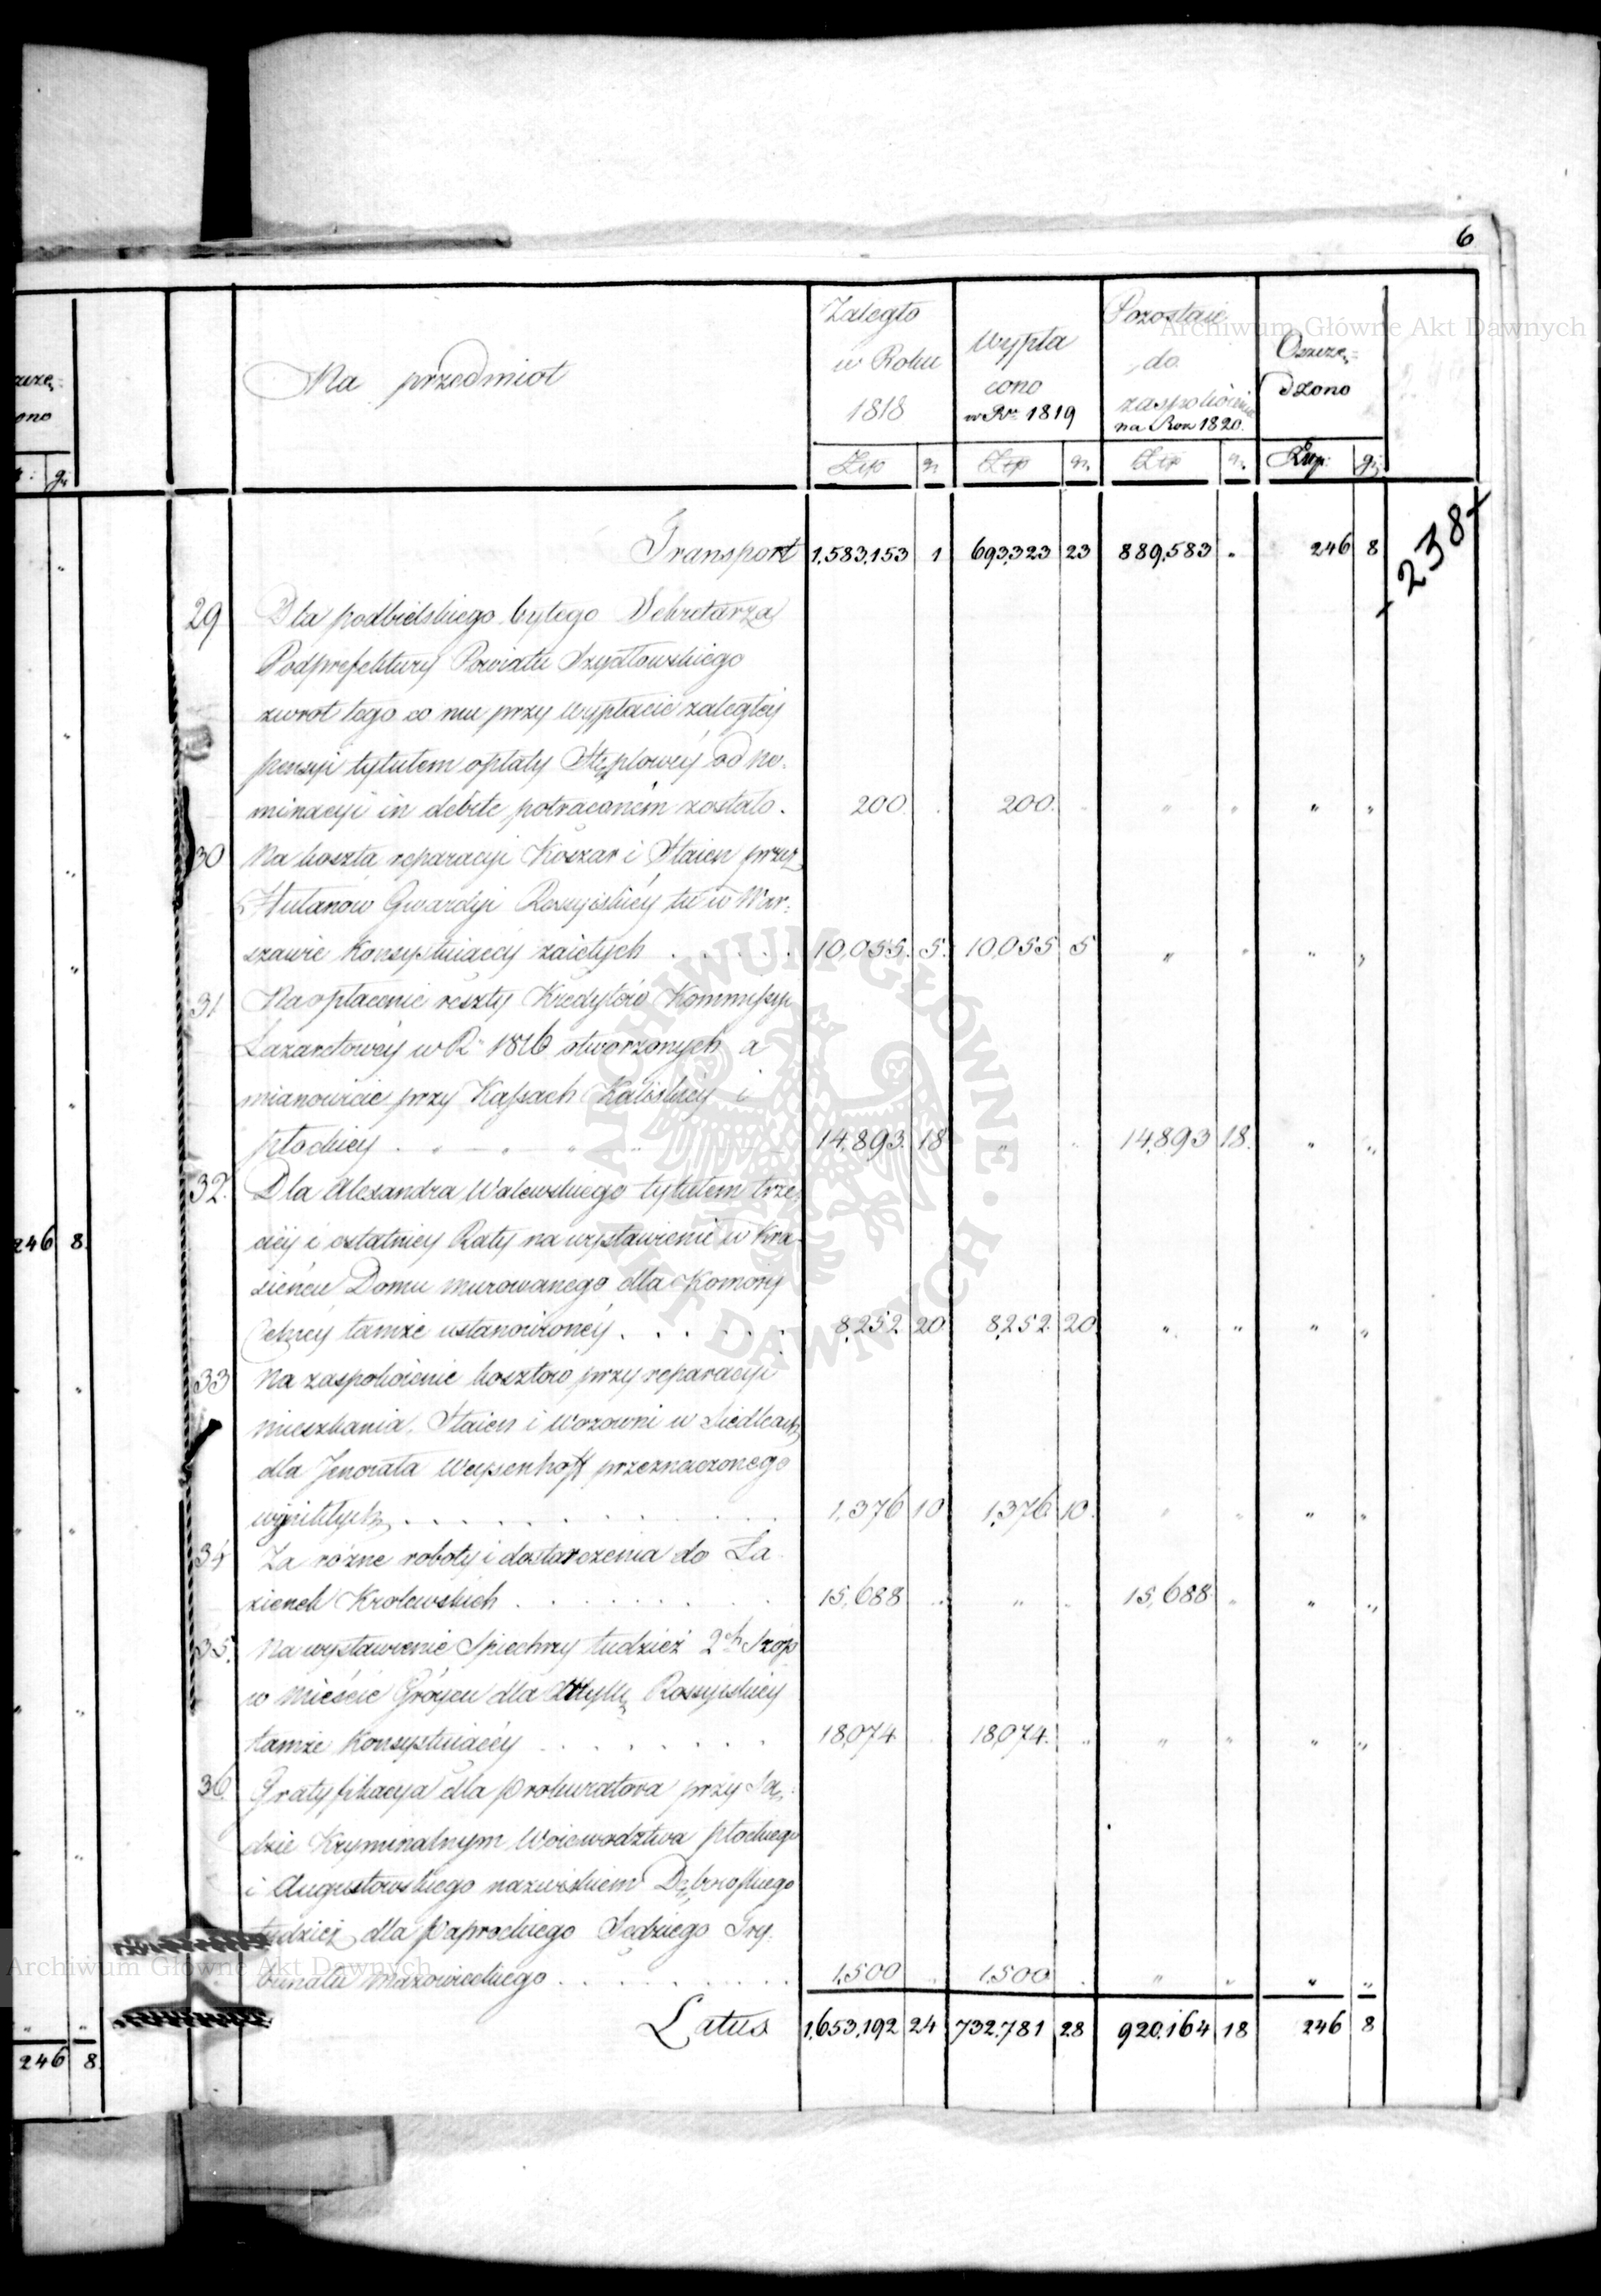 6
Archiwum Główne Akt Dawnych
Na przedmiot
Zaległo w Roku 1818
Wypłacono w Rku 1819
Pozostaie do zaspokoienia na Rok 1820.
Oszczędzono
Złp gr Złp gr Złp gr Złp. gr
238
Transport 1,583,153 1 693,323 23 889,583 „ 246 8
29 Dla podbielskiego byłego Sekretarza
Podprefektury Powiatu Szydłowskiego
zwrot tego co mu przy wypłacie zaległey
pensyi tytułem opłaty Stęplowey od no-
minacyi in debite potrąconem zostało. 200 . 200. „ „ „ „
30 Na koszta reparacyi Koszar i Staien przez
Hułanów Gwardyi Rossyiskiey tu w War-
szawie Konsystuiącey zaiętych . . . . . 10,055. 5. 10,055 5 „ „ „ „
31 Na opłacenie reszty Kredytów Kommissyi
Lazaretowey w R. 1816 otworzonych a
mianowicie przy Kassach Kaliskiey i
płockiey 14,893. 18 „ „ 14,893 18. „ „
32. Dla Alexandra Walewskiego tytułem trze-
ciey i ostatniey Raty na wystawienie w Kra-
sieńcu Domu murowanego dla Komory
Celney tamże ustanowioney . . . . . . 8,252. 20 8,252. 20. „ „ „ „
33 Na zaspokoienie kosztów przy reparacyi
mieszkania, Staien i wozowni w Siedlcach
dla Jenerała Weyssenhoff przeznaczonego
wynikłych . . . . . . . . . . . 1,376 10 1,376. 10. „ „ „ „
34 Za różne roboty i dostarczenia do Ła-
zienek Krolewskich . . . . . . . . 15,688 „ „ „ 15,688 „ „ „
35. Na wystawienie Spichrzy tudzież 2ch Szop
w Mieście Gróycu dla Artylle Rossyiskiey
tamże Konsystuiącey . . . . . . . . 18,074 18,074. „ „ „ „ „
36. Gratyfikacya dla Prokuratora przy Są-
dzie Kryminalnym Woiewodztwa płockiego
i Augustowskiego nazwiskiem Dąbrowskiego
tudzież dla Paprockiego Sędziego Try-
bunału Mazowieckiego . . . . . . . . 1,500 . 1,500 . „ „ „ „
Latus 1,653,192 24 732,781 28 920,164 18 246 8
ono
gr
246 8.
246 8.
Archiwum Główne Akt Dawnych
ARCHIWUM GŁÓWNE AKT DAWNYCH